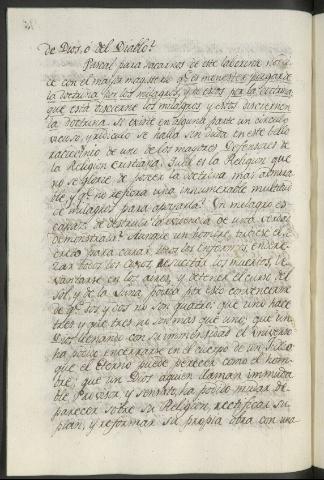 de Dios, ó del Diablo?
Pascal para sacarnos de este laberinto nos di-
ce con el mayor magisterio q.e es menester juzgar de
la doctrina por los milagros, y de estos por la doctrina
que esta discierne los milagros, y estos disciernen
la doctrina. Si existe en alguna parte un circulo
vicioso, y ridiculo se halla sin duda en este bello
raciocinio de uno de los mayores Defensores de
la Religion cristiana. Qual es la Religion que
no se glorie de poseer la doctrina mas admira-
ble, y q.e no refiera una innumerable multitud
de milagros para apoyarla? Un milagro es
capaz de destruir la evidencia de una verdad
demonstrada? Aunque un hombre tubiese el se-
creto para curar todos los Enfermos, endere-
zar todos los Cojos, resucitar los muertos, le-
vantarse en los aires, y detener el curso del
Sol, y de la Luna, podria por eso convencerme
de q.e dos y dos no son quatro; que uno hace
tres y que tres no son mas que uno; que un
Dios llenando con su inmensidad el Universo
ha podido encerrarse en el cuerpo de un Judio
que el Eterno puede perecer como el hom-
bre; que un Dios aquien llaman inmuta-
ble Provisor y sensato, ha podido mudar de
parecer sobre su Religion, rectificar su
plan, y reformar su propia obra con una